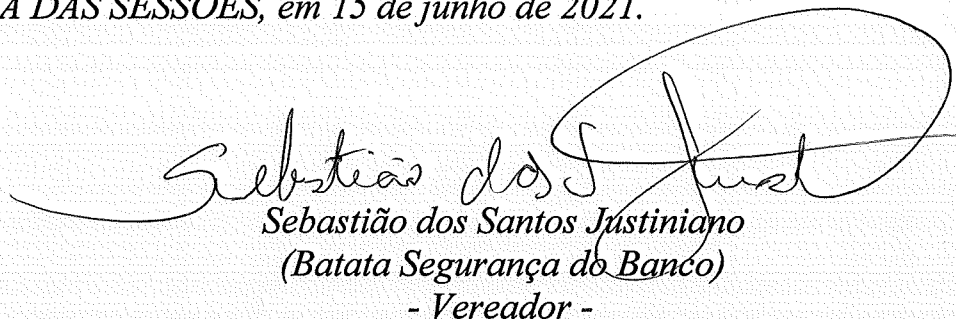 A DAS SESSÕES, em 15 de junho de 2021.
Sebastião dos S Just
Sebastião dos Santos Justiniano
(Batata Segurança do Banco)
- Vereador -